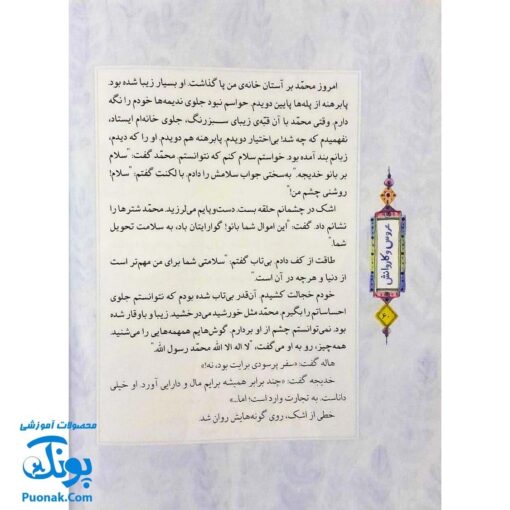 امروز محمّد بر آستان خانه‌ی من پا گذاشت. او بسیار زیبا شده بود.
پابرهنه از پله‌ها پایین دویدم. حواسم نبود جلوی ندیمه‌ها خودم را نگه
دارم. وقتی محمّد با آن قبّه‌ی زیبای سبزرنگ، جلوی خانه‌ام ایستاد،
نفهمیدم که چه شد! بی‌اختیار دویدم. پابرهنه هم دویدم. او را که دیدم،
زبانم بند آمده بود. خواستم سلام کنم که نتوانستم. محمّد گفت: "سلام
بر بانو خدیجه." به‌سختی جواب سلامش را دادم. با لکنت گفتم: "سلام!
روشنی چشم من!"
اشک در چشمانم حلقه بست. دست‌وپایم می‌لرزید. محمّد شترها را
نشانم داد. گفت: "این اموال شما بانو! گوارایتان باد، به سلامت تحویل
شما."
طاقت از کف دادم. بی‌تاب گفتم: "سلامتی شما برای من مهم‌تر است
از دنیا و هرچه در آن است."
خودم خجالت کشیدم. آن‌قدر بی‌تاب شده بودم که نتوانستم جلوی
احساساتم را بگیرم. محمّد مثل خورشید می‌درخشید. زیبا و باوقار شده
بود. نمی‌توانستم چشم از او بردارم. گوش‌هایم همهمه‌هایی را می‌شنید.
همه‌چیز، رو به او می‌گفت، "لا اله الا الله محمّد رسول الله."
هاله گفت: «سفر پرسودی برایت بود، نه!»
خدیجه گفت: «چند برابر همیشه برایم مال و دارایی آورد. او خیلی
داناست. به تجارت وارد است؛ اما...»
خطی از اشک، روی گونه‌هایش روان شد.
عروس و کاروانش
۶۰
محصولات آموزشی
پونک
Puonak.Com